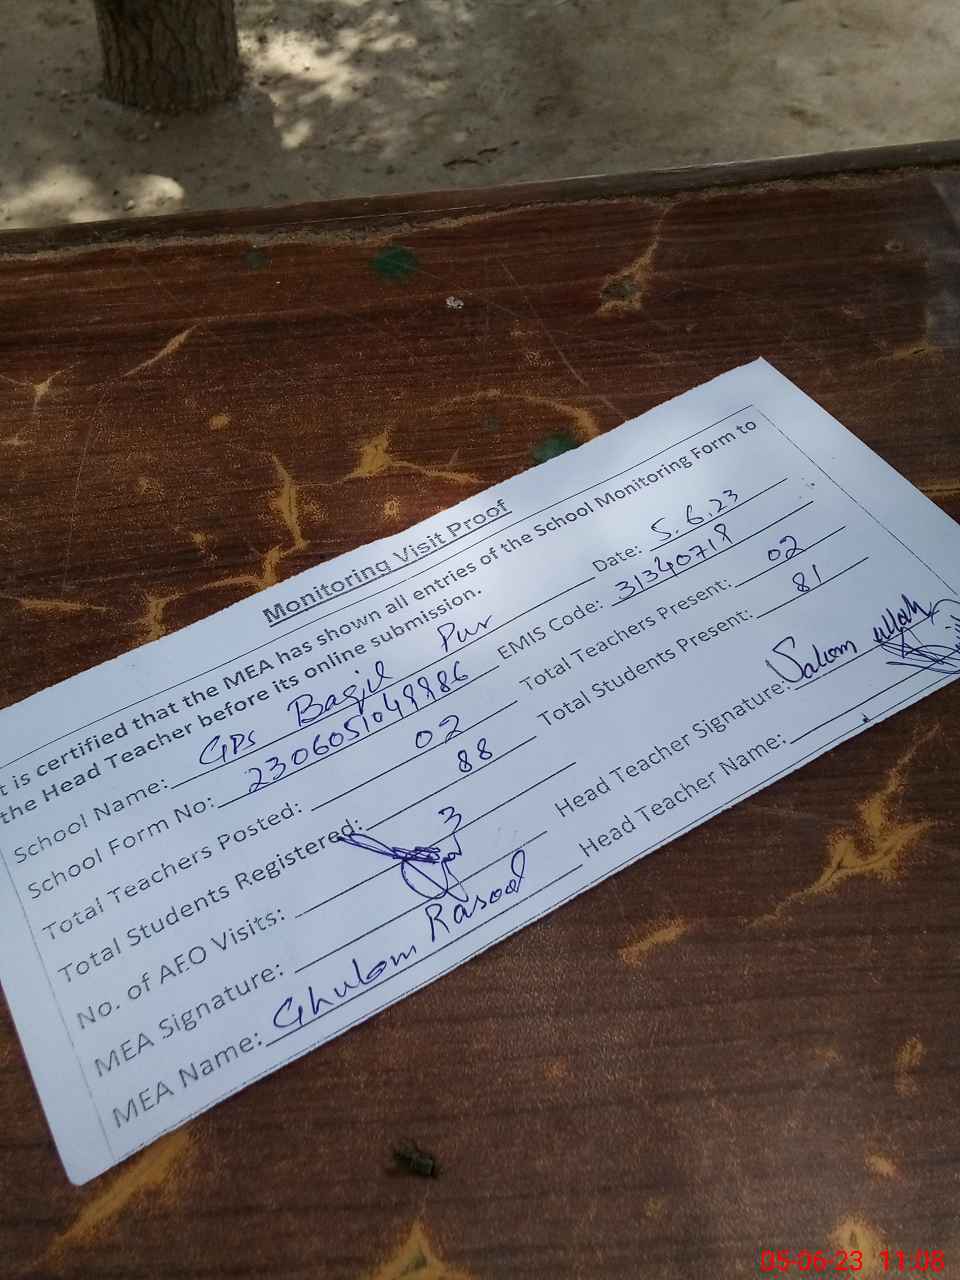 Monitoring Visit Proof
t is certified that the MEA has shown all entries of the School Monitoring Form to
the Head Teacher before its online submission.
School Name: GPS Baqil Pur Date: 5.6.23
School Form No: 2306051049886 EMIS Code: 31340718
Total Teachers Posted: 02 Total Teachers Present: 02
Total Students Registered: 88 Total Students Present: 81
No. of AEO Visits: 3
MEA Signature: Head Teacher Signature: Salom ullah
MEA Name: Ghulam Rasool Head Teacher Name:
05-06-23 11:08